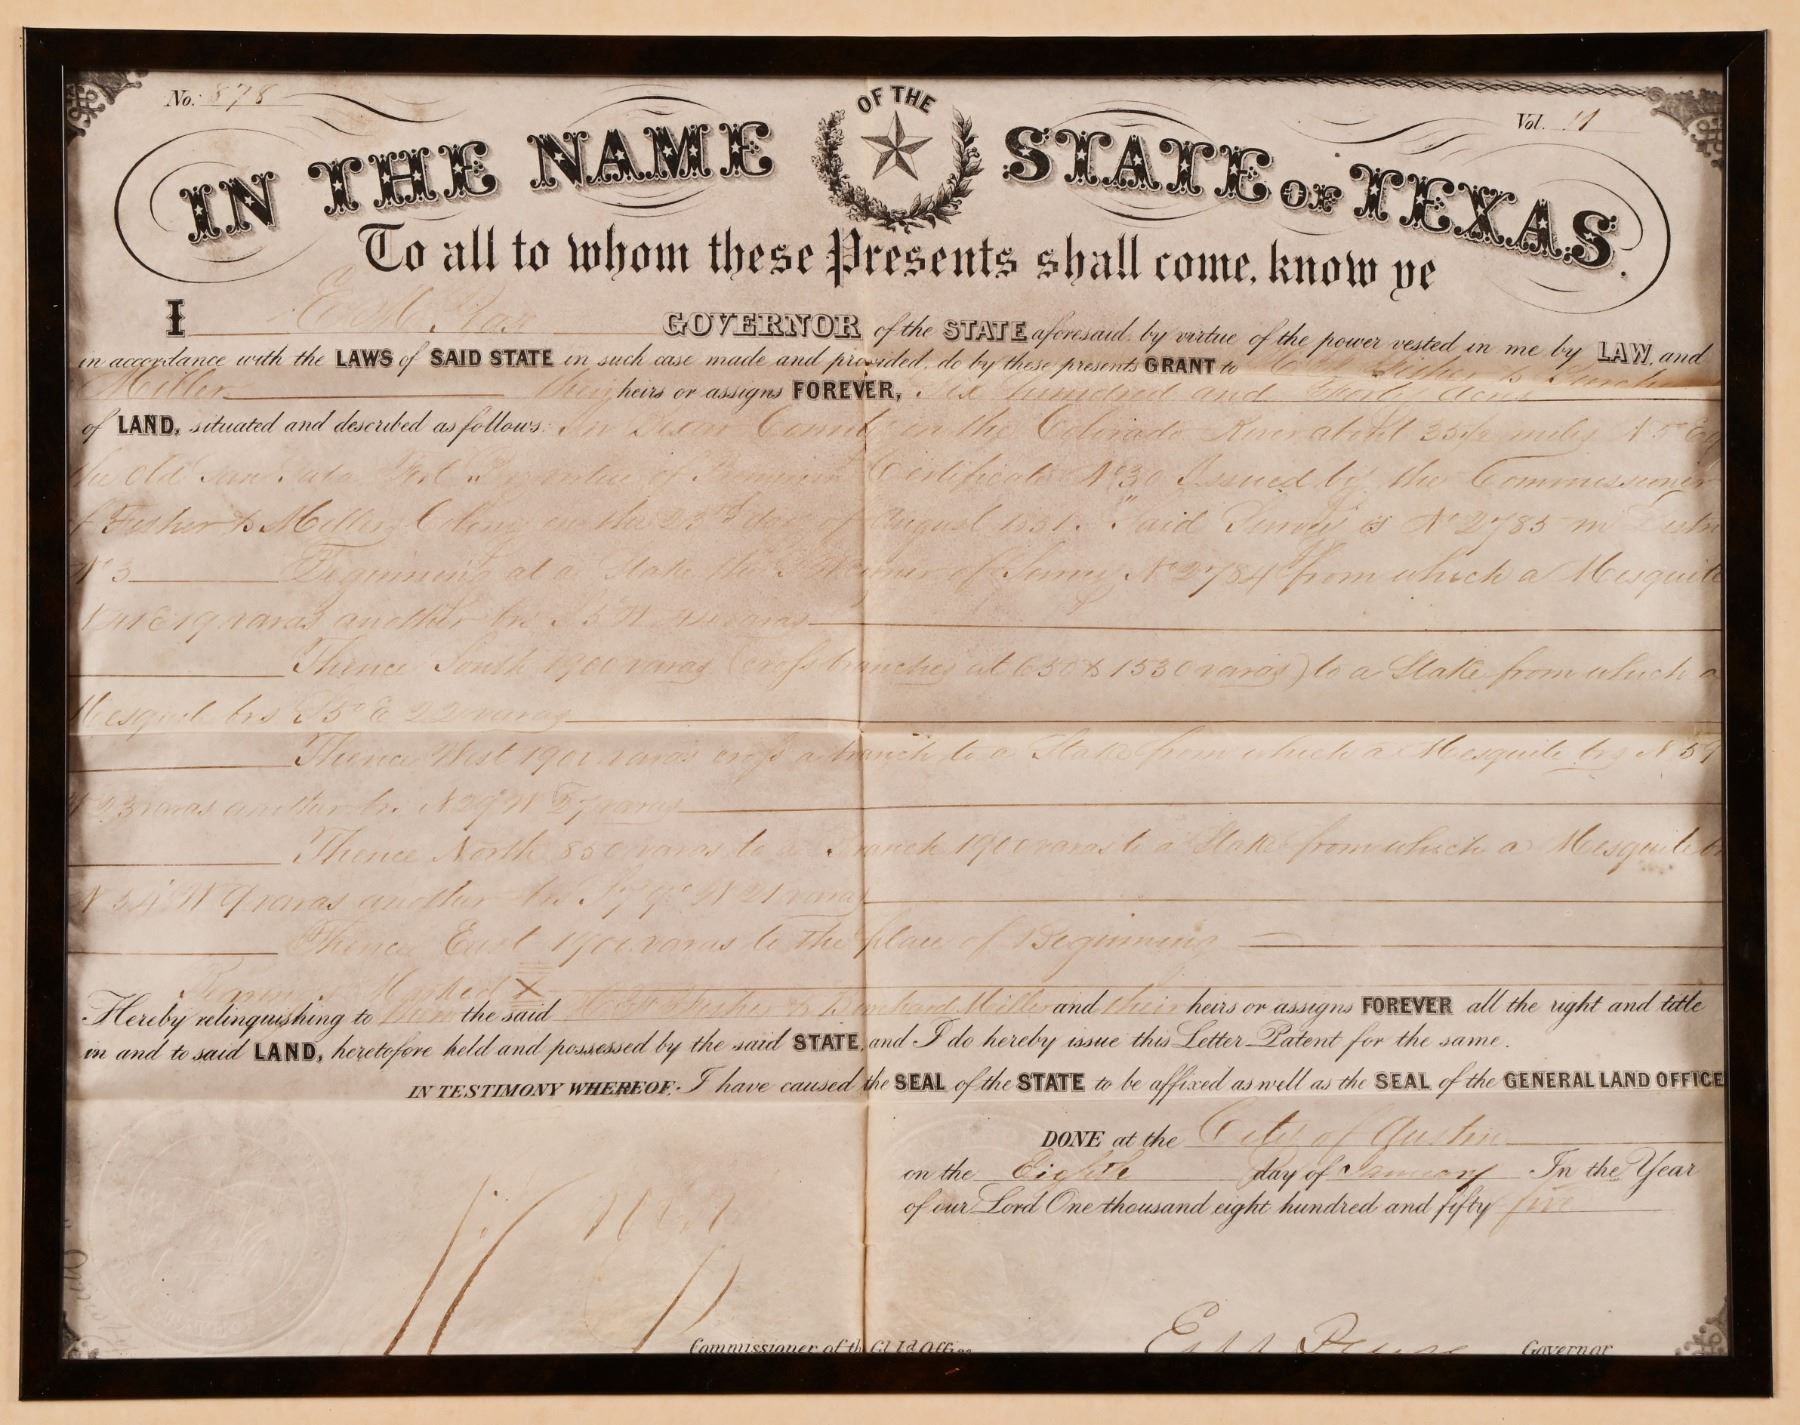 No. 878
Vol. 11
IN THE NAME OF THE STATE OF TEXAS.
To all to whom these Presents shall come, know ye
I E. M. Pease GOVERNOR of the STATE aforesaid, by virtue of the power vested in me by LAW, and
in accordance with the LAWS of SAID STATE in such case made and provided, do by these presents GRANT to Fisher &
Miller their heirs or assigns FOREVER, Six hundred and Forty Acres
of LAND, situated and described as follows: In Bexar County on the Colorado River about 35½ miles N 5° E of
the old San Saba Fort By virtue of Premium Certificate No 30 Issued by the Commissioner
of Fisher & Millers Colony on the 23rd day of August 1851. Said Survey is No 2785 in Distr
No 3 Beginning at a Stake the corner of Survey No 2784 from which a Mesquite
E 19 varas another brs S 5 W varas
Thence South 1900 varas (cross branches at 650 & 1530 varas) to a Stake from which a
Mesquite brs S 5° E 22 varas
Thence West 1901 varas cross a branch to a Stake from which a Mesquite brs N 59
W 23 varas another br. N 29° W 57 varas
Thence North 850 varas to a Branch 1900 varas to a Stake from which a Mesquite br
N 34° W 9 varas another brs W 21 varas
Thence East 1901 varas to the place of Beginning
Bearings Marked X
Hereby relinquishing to them the said Fisher & Burchard Miller and their heirs or assigns FOREVER all the right and title
in and to said LAND, heretofore held and possessed by the said STATE, and I do hereby issue this Letter Patent for the same.
IN TESTIMONY WHEREOF: I have caused the SEAL of the STATE to be affixed as well as the SEAL of the GENERAL LAND OFFICE
DONE at the City of Austin
on the Eighth day of January In the Year
of our Lord One thousand eight hundred and fifty five
Commissioner of the Gl Ld Office
E. M. Pease Governor